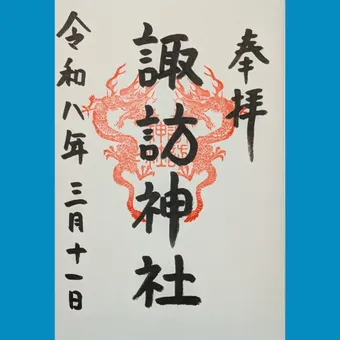 奉拝
諏訪神社
令和八年三月十一日